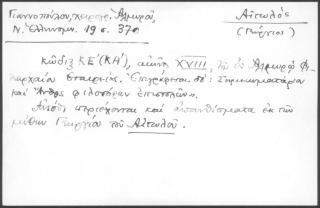 Γιαννοπούλου, χειρογρ. Αλμυροῦ,
Αἰτωλός
Ν. Ἑλληνομν. 19 σ. 370
(Γεώργιος)
Κώδιξ ΚΕ΄ (ΚΑ΄), αἰῶνος XVIII, τῆς ἐν Ἁλμυρῷ Φι-
λαρχαίου Ἑταιρείας. Ἐπιγράφεται δέ: Σημειωματάριον
καὶ Ἄνθος φιλοσόφων ἐπιστολῶν».
Αὐτόθι περιέχονται καὶ ἀπανθίσματα ἐκ τῶν
μύθων Γεωργίου τοῦ Αἰτωλοῦ.